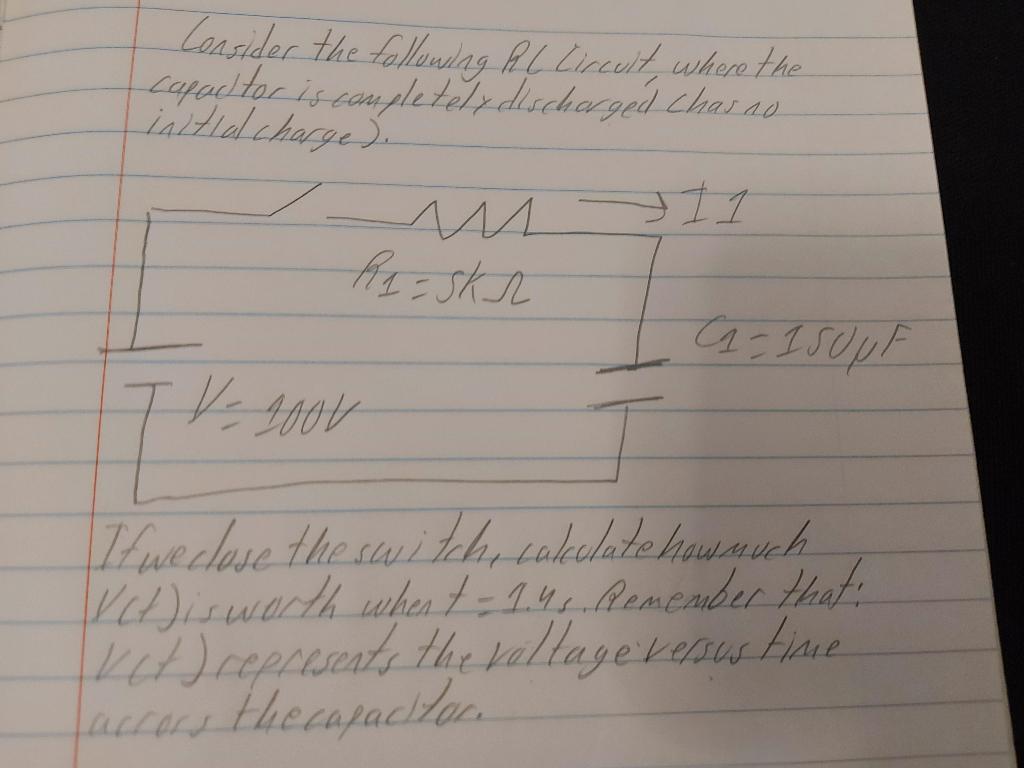 Consider the following RC Circuit, where the
capacitor is completely discharged (has no
initial charge).
I1
R1=5kΩ
C1=150μF
V=100V
If we close the switch, calculate how much
V(t) is worth when t=1.4s. Remember that:
V(t) represents the voltage versus time
across the capacitor.